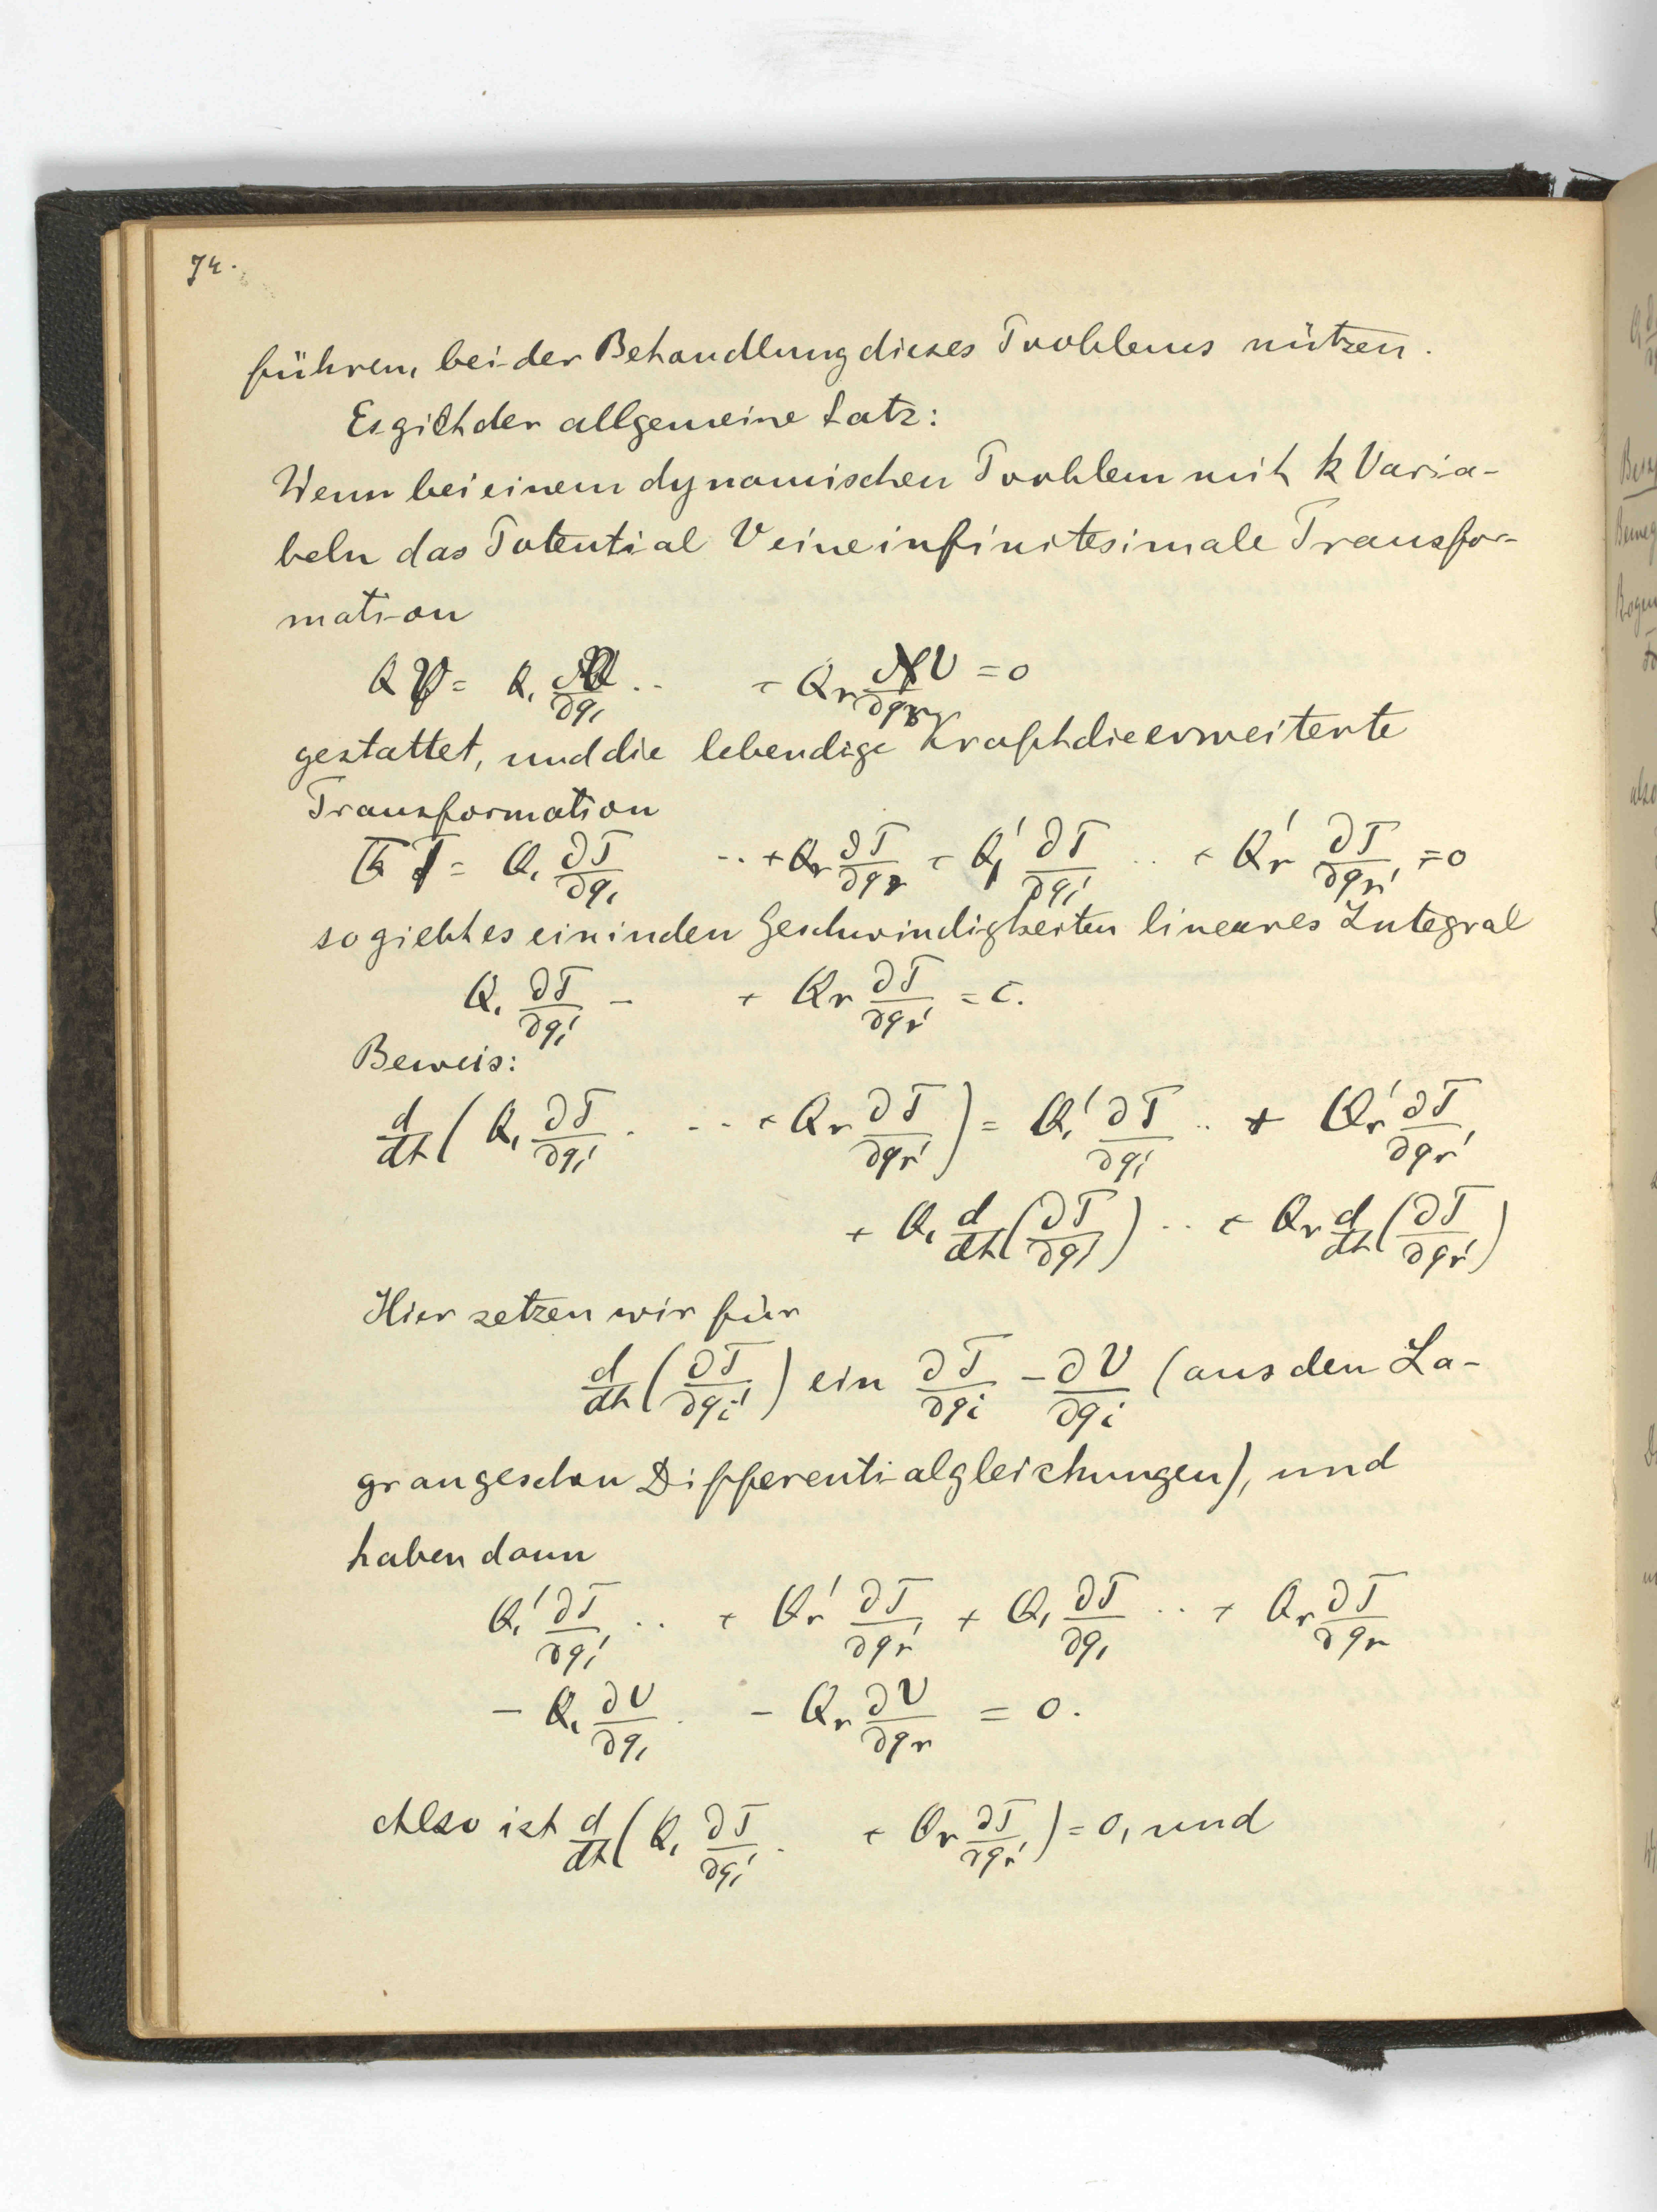 74.
führen, bei der Behandlung dieses Problems nützen.
Es gilt der allgemeine Satz:
Wenn bei einem dynamischen Problem mit k Varia-
beln das Potential V eine infinitesimale Transfor-
mation
Q V = Q₁ ∂V/∂q₁ .. + Qr ∂V/∂qr = 0
gestattet, und die lebendige Kraft die erweiterte
Transformation
Q̅ T = Q₁ ∂T/∂q₁ .. + Qr ∂T/∂qr + Q₁' ∂T/∂q₁' .. + Qr' ∂T/∂qr' = 0
so giebt es ein in den Geschwindigkeiten lineares Integral
Q₁ ∂T/∂q₁' – + Qr ∂T/∂qr' = c.
Beweis:
d/dt ( Q₁ ∂T/∂q₁' . .. + Qr ∂T/∂qr' ) = Q₁' ∂T/∂q₁' .. + Qr' ∂T/∂qr'
+ Q₁ d/dt (∂T/∂q₁') .. + Qr d/dt (∂T/∂qr')
Hier setzen wir für
d/dt (∂T/∂qi') ein ∂T/∂qi – ∂V/∂qi (aus den La-
grangeschen Differentialgleichungen), und
haben dann
Q₁' ∂T/∂q₁' .. + Qr' ∂T/∂qr' + Q₁ ∂T/∂q₁ .. + Qr ∂T/∂qr
– Q₁ ∂V/∂q₁ . – Qr ∂V/∂qr = 0.
Also ist d/dt ( Q₁ ∂T/∂q₁' . + Qr ∂T/∂qr' ) = 0, und